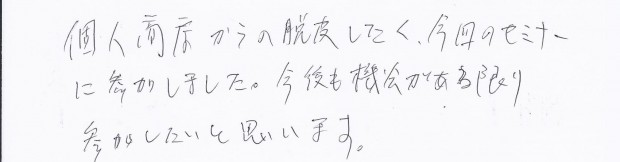 個人商店からの脱皮したく、今回のセミナー
に参加しました。今後も機会がある限り
参加したいと思います。